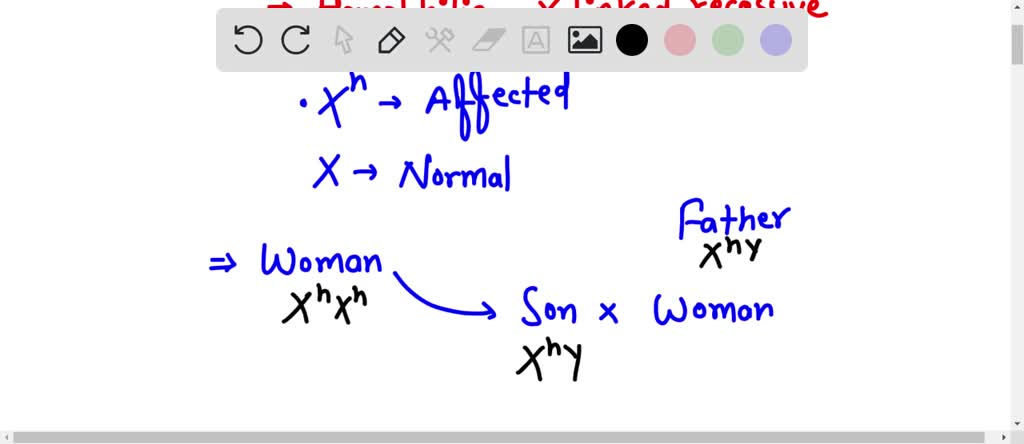 ⇒ Hemophilia X linked recessive
• Xʰ → Affected
X → Normal
Father
XʰY
⇒ Woman
XʰXʰ
Son x Woman
XʰY